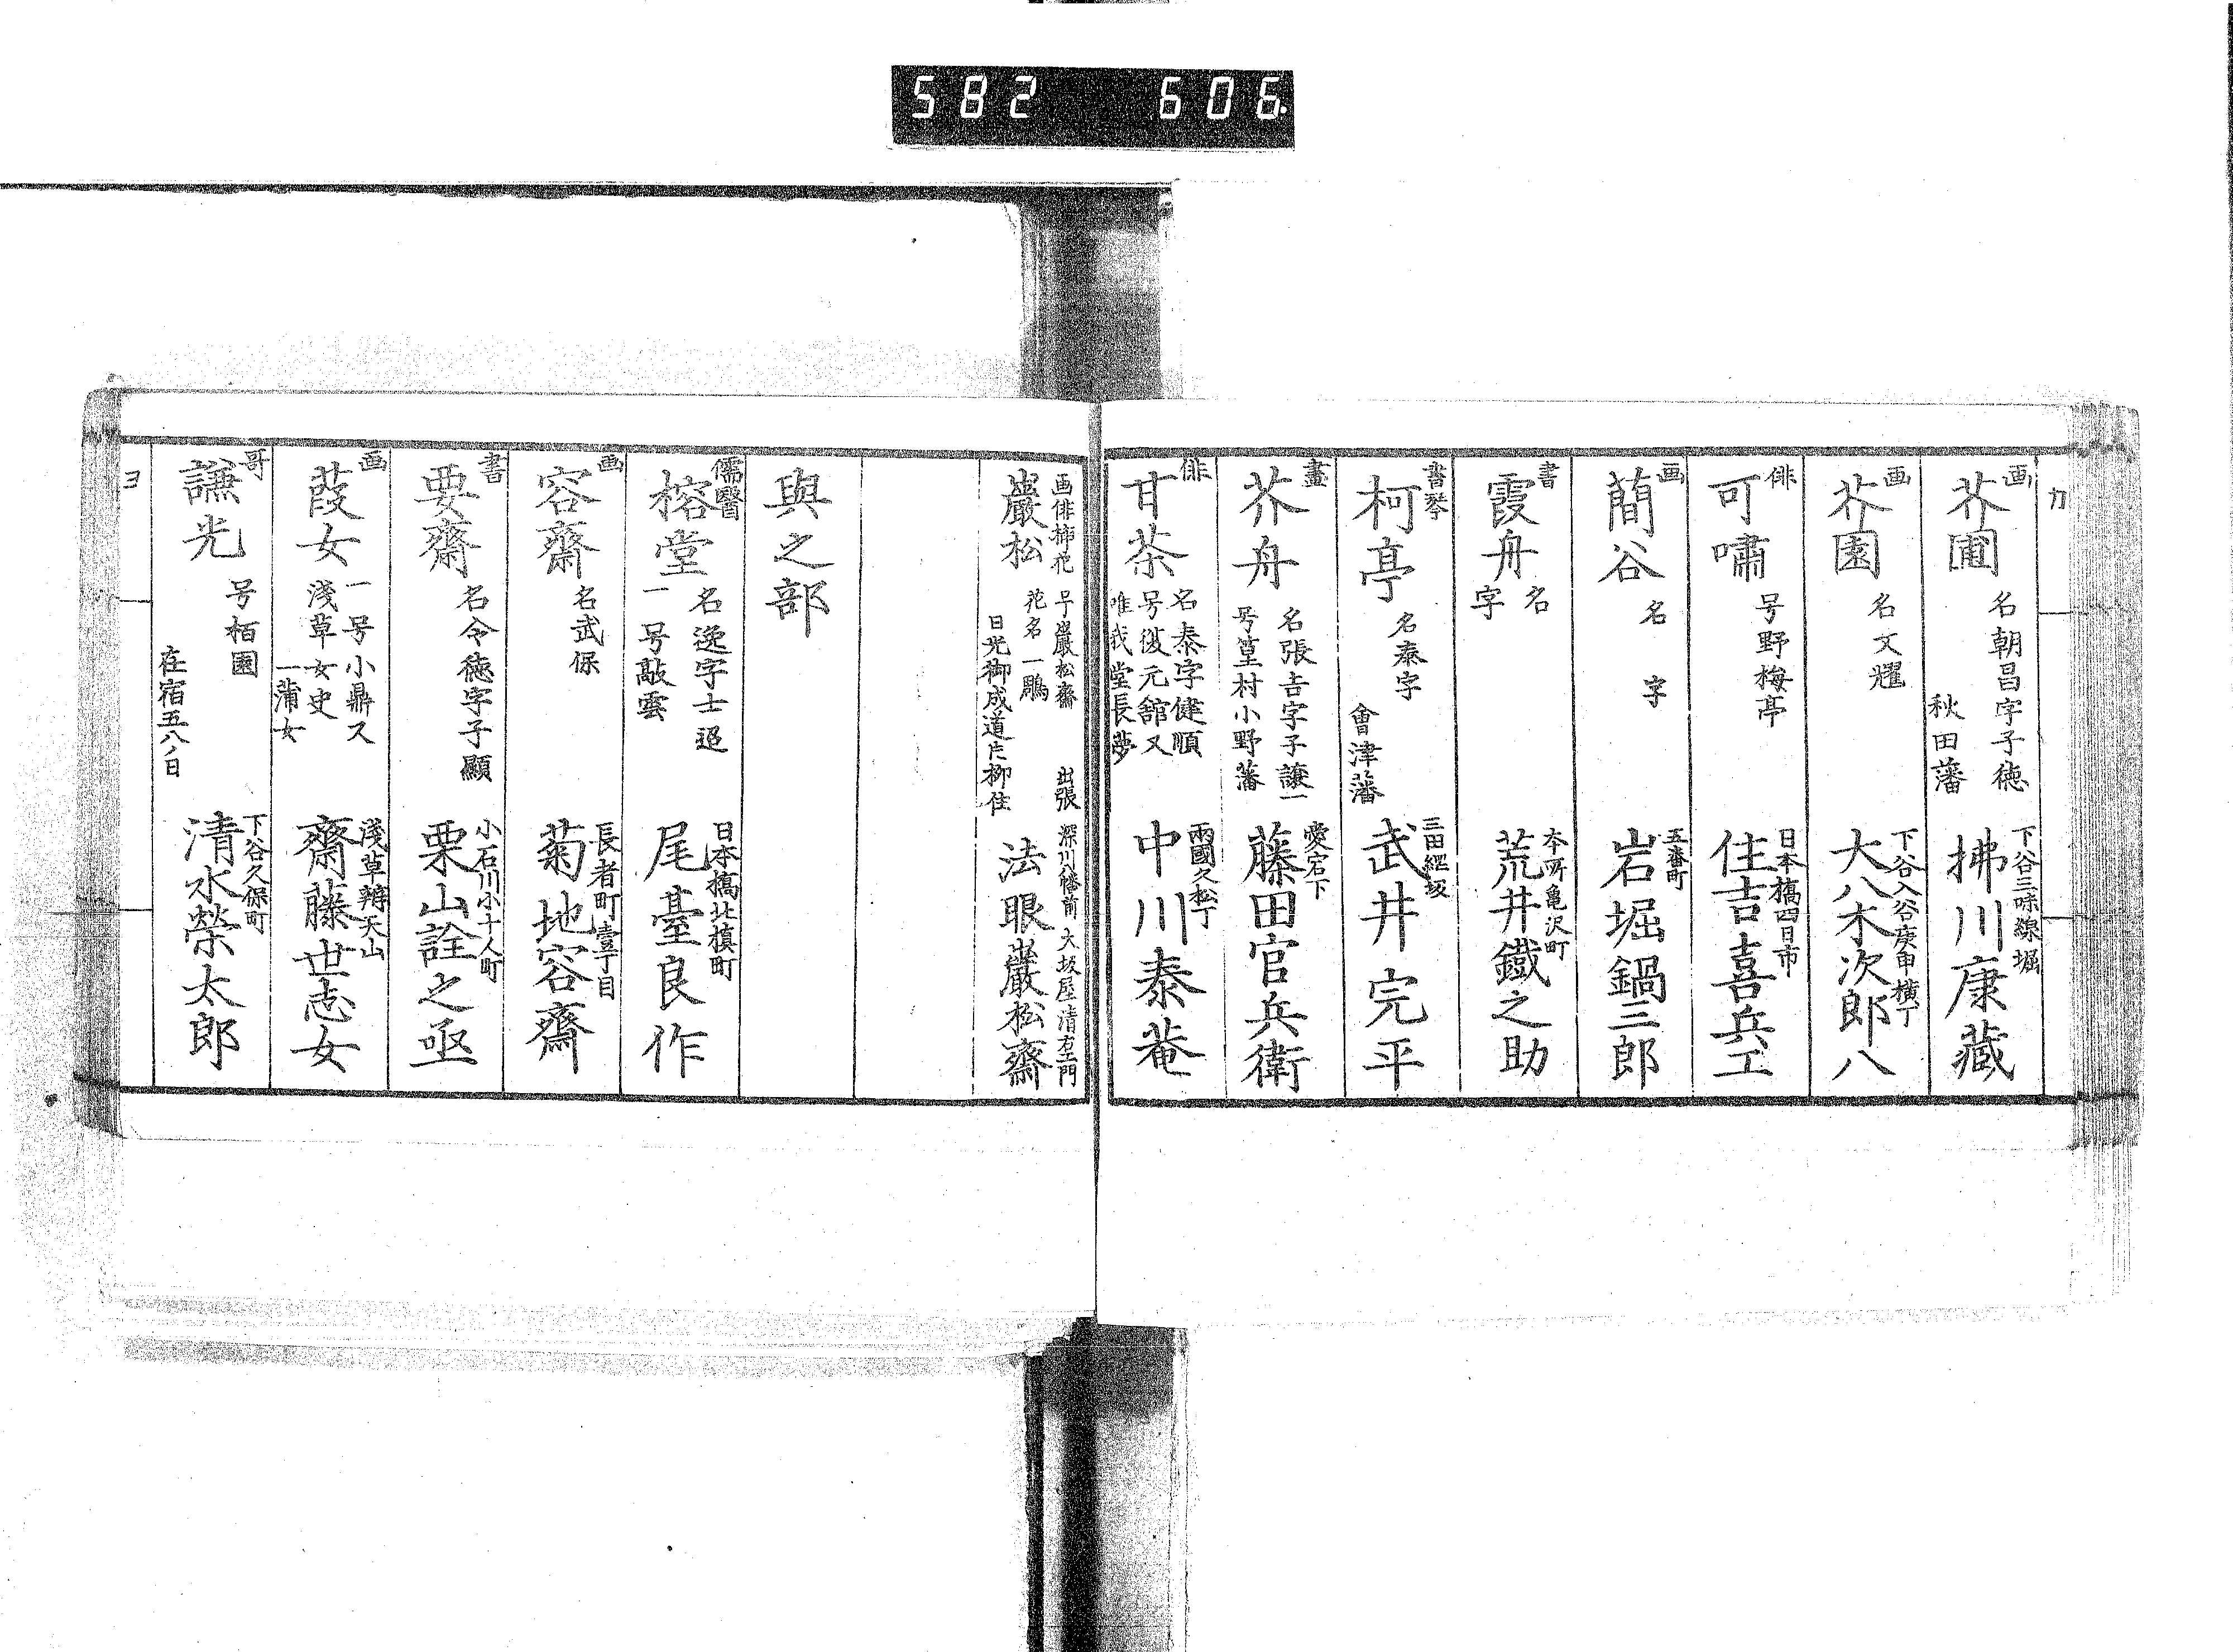 582 606
カ
画
芥圃
名朝昌字子徳
秋田藩
下谷三味線堀
拂川康藏
画
芥園
名文耀
下谷入谷庚申横丁
大八木次郎八
俳
可嘯
号野梅亭
日本橋四日市
住吉喜兵工
画
蕳谷
名 字
五番町
岩堀鍋三郎
書
霞舟
名
字
本所亀沢町
荒井鐵之助
書琴
柯亭
名泰字
會津藩
三田綱坂
武井完平
畫
芥舟
名張吉字子讓一
号篁村小野藩
愛宕下
藤田官兵衛
俳
甘茶
名泰字健順
号復元舘又
唯我堂長夢
両國久松丁
中川泰菴
画俳挿花
巖松
号巖松齋
花名一鵰
日光御成道片柳住
出張 深川八幡前 大坂屋清右エ門
法眼巖松齋
與之部
儒醫
榕堂
名逸字士超
一号敲雲
日本橋北槇町
尾臺良作
画
容齋
名武保
長者町壹丁目
菊地容齋
書
要齋
名令徳字子顯
小石川小十人町
栗山詮之亟
画
葭女
一号小鼎又
淺草女史
一蒲女
淺草辨天山
齋藤世志女
哥
謙光
号栢園
在宿五八ノ日
下谷久保町
清水榮太郎
ヨ